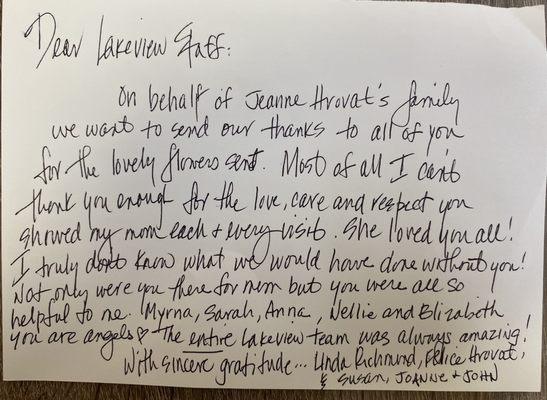 Dear Lakeview Staff:
On behalf of Jeanne Hrovat's family
we want to send our thanks to all of you
for the lovely flowers sent. Most of all I can't
thank you enough for the love, care and respect you
showed my mom each + every visit. She loved you all!
I truly don't know what we would have done without you!
Not only were you there for mom but you were all so
helpful to me. Myrna, Sarah, Anna, Nellie and Elizabeth
you are angels ♡ The entire Lakeview team was always amazing!
With sincere gratitude... Linda Richmond, Felice Hrovat,
& Susan, JOANNE + JOHN